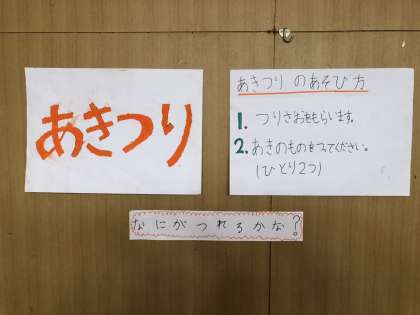 あきつり
あきつり のあそび方
1. つりざおをもらいます。
2. あきのものをつってください。
(ひとり2つ)
なにがつれるかな?